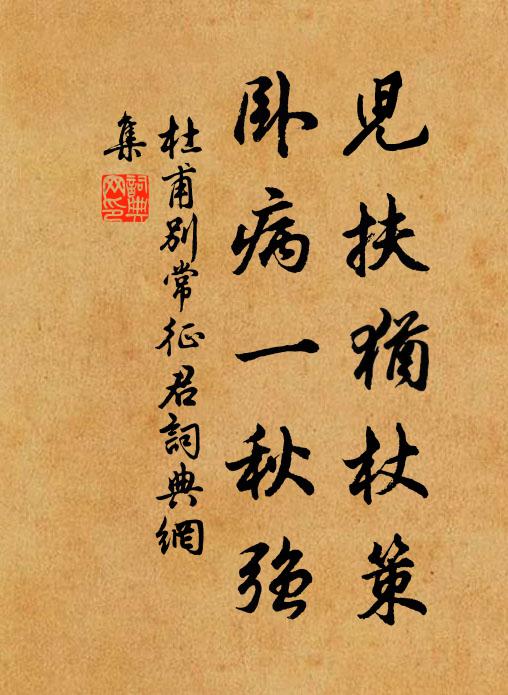 兒扶猶杖策
卧病一秋强
杜甫別常征君詞典網
集
詞典
网印